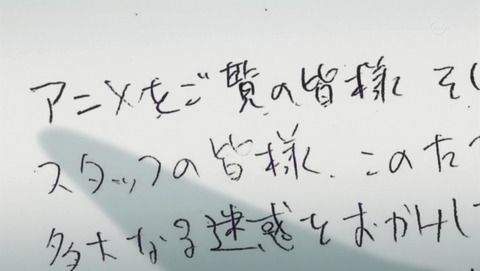 アニメをご覧の皆様 そし
スタッフの皆様、このたび
多大なる迷惑をおかけし